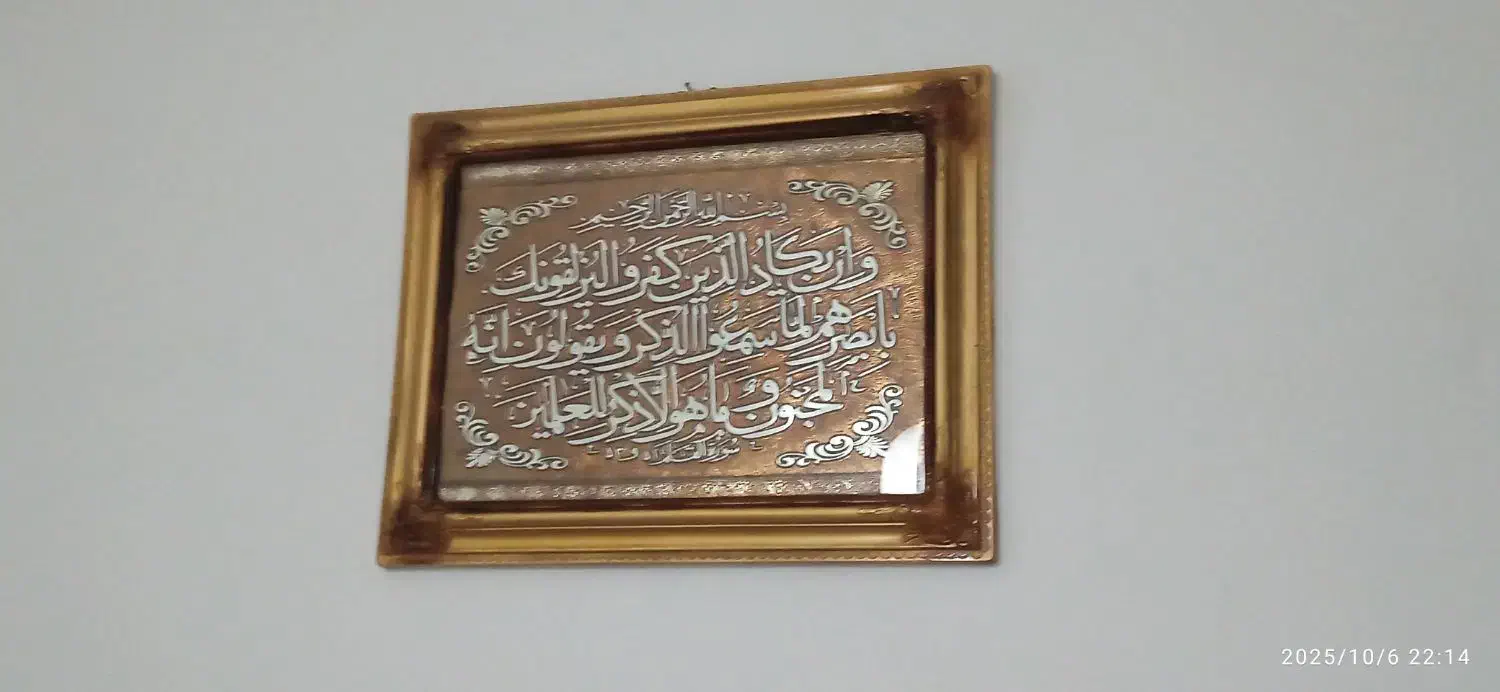 بسم الله الرحمن الرحيم
وان يكاد الذين كفروا ليزلقونك
بابصرهم لما سمعوا الذكر و يقولون انه
لمجنون و ما هو الا ذكر للعلمين
سورة القلم ٥١ و ٥٢
2025/10/6 22:14